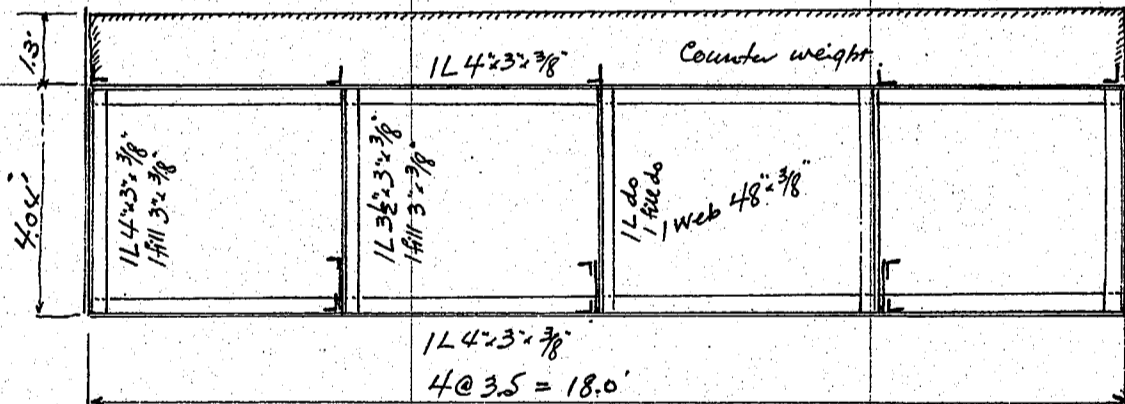 1.3'
1L 4"x3"x3/8"
Counter weight
4.04'
1L 4"x3"x3/8"
1 fill 3"x3/8"
1L 3½"x3"x3/8"
1 fill 3"x3/8"
1L do
1 fill do
1 Web 48"x3/8"
1L 4"x3"x3/8"
4@3.5 = 18.0'